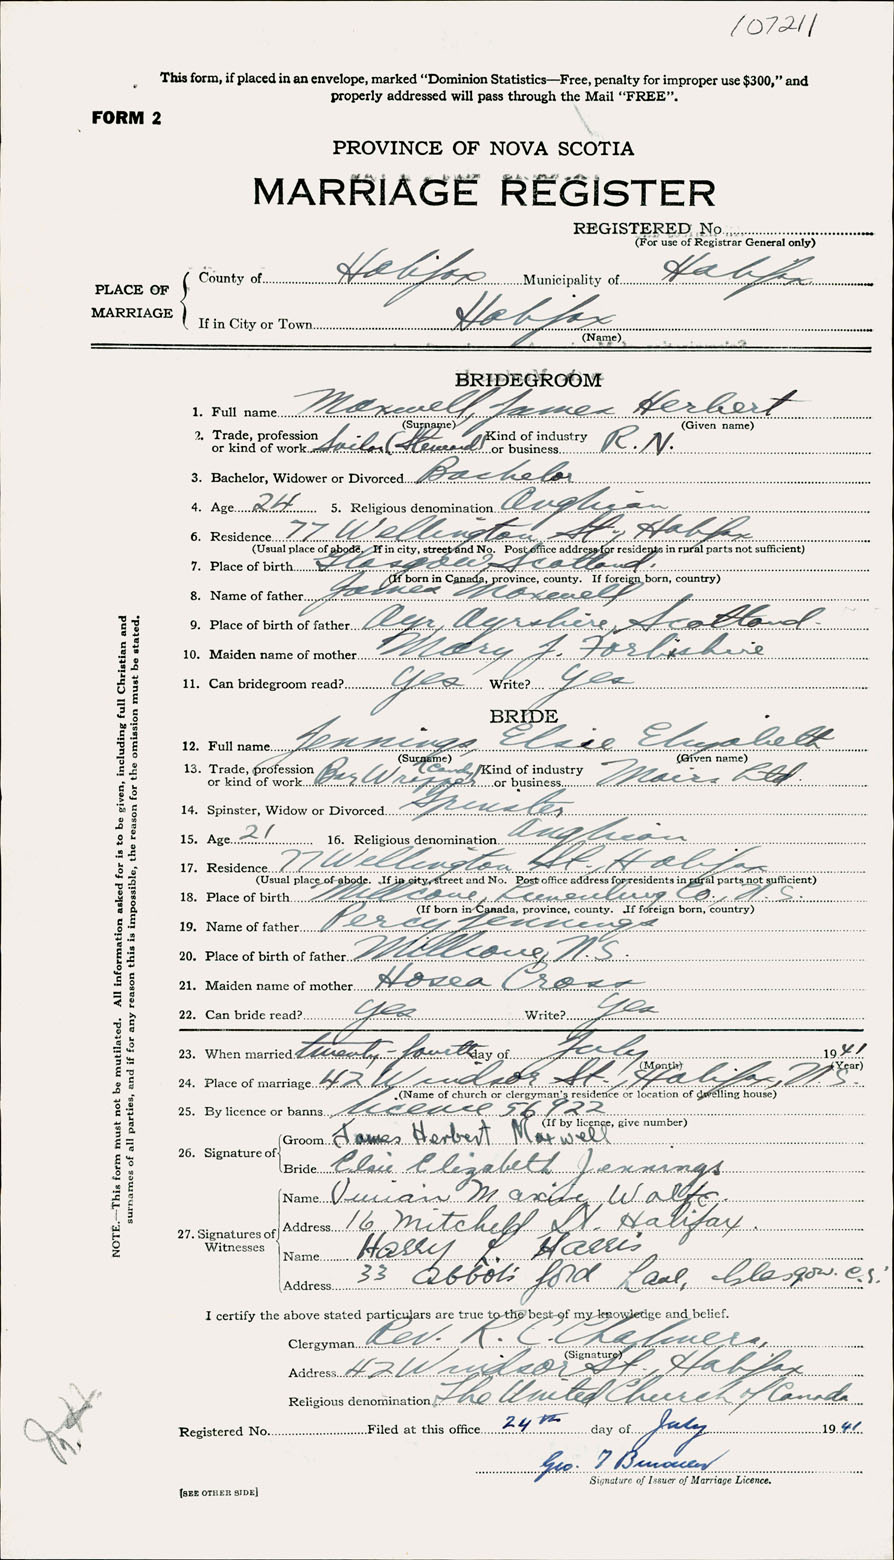 107211
This form, if placed in an envelope, marked “Dominion Statistics—Free, penalty for improper use $300,” and
properly addressed will pass through the Mail “FREE”.
FORM 2
PROVINCE OF NOVA SCOTIA
MARRIAGE REGISTER
REGISTERED No.
(For use of Registrar General only)
PLACE OF MARRIAGE
County of Halifax Municipality of Halifax
If in City or Town Halifax
(Name)
BRIDEGROOM
1. Full name Maxwell, James Herbert
(Surname) (Given name)
2. Trade, profession or kind of work Sailor (Steward) Kind of industry or business R.N.
3. Bachelor, Widower or Divorced Bachelor
4. Age 24 5. Religious denomination Anglican
6. Residence 77 Wellington St., Halifax
(Usual place of abode. If in city, street and No. Post office address for residents in rural parts not sufficient)
7. Place of birth Glasgow, Scotland.
(If born in Canada, province, county. If foreign born, country)
8. Name of father James Maxwell
9. Place of birth of father Ayr, Ayrshire, Scotland.
10. Maiden name of mother Mary J. Forbishire
11. Can bridegroom read? Yes Write? Yes
BRIDE
12. Full name Jennings, Elsie Elizabeth
(Surname) (Given name)
13. Trade, profession or kind of work Wrapper (Candy) Kind of industry or business Moirs Ltd.
14. Spinster, Widow or Divorced Spinster
15. Age 21 16. Religious denomination Anglican
17. Residence 77 Wellington St., Halifax
(Usual place of abode. If in city, street and No. Post office address for residents in rural parts not sufficient)
18. Place of birth Millcove, Lunenburg Co., N.S.
(If born in Canada, province, county. If foreign born, country)
19. Name of father Percy Jennings
20. Place of birth of father Millcove, N.S.
21. Maiden name of mother Hosea Cross
22. Can bride read? Yes Write? Yes
23. When married twenty-fourth day of July 1941
(Month) (Year)
24. Place of marriage 42 Windsor St., Halifax, N.S.
(Name of church or clergyman's residence or location of dwelling house)
25. By licence or banns licence 56922
(If by licence, give number)
26. Signature of
Groom James Herbert Maxwell
Bride Elsie Elizabeth Jennings
27. Signatures of Witnesses
Name Vivian Maxine
Address 16 Mitchell St. Halifax.
Name Harry Harris
Address 33 Abbotsford Lane, Glasgow.
I certify the above stated particulars are true to the best of my knowledge and belief.
Clergyman Rev. R. C. Chalmers,
(Signature)
Address 42 Windsor St., Halifax
Religious denomination The United Church of Canada
Registered No. Filed at this office 24th day of July 1941
Geo.
Signature of Issuer of Marriage Licence.
[SEE OTHER SIDE]
NOTE.—This form must not be mutilated. All information asked for is to be given, including full Christian and
surnames of all parties, and if for any reason this is impossible, the reason for the omission must be stated.